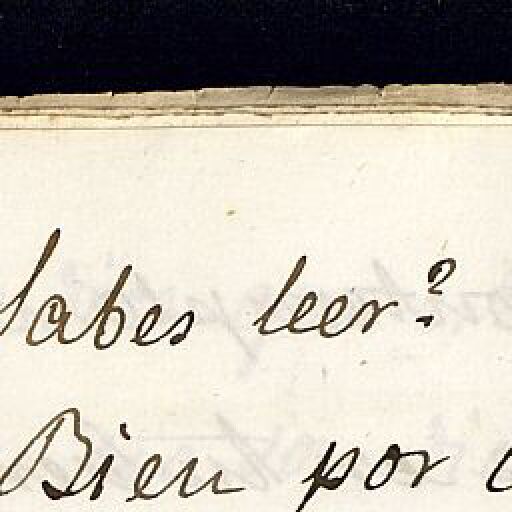 Sabes leer?
Bien por